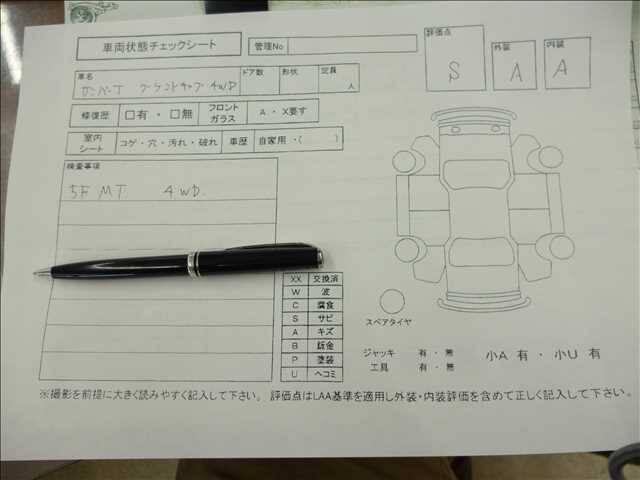 車両状態チェックシート
管理No
評価点
S
外装
A
内装
A
車名
ドア数
形状
定員
人
4WD
修復歴
□有 ・ □無
フロント
ガラス
A ・ X要す
室内
シート
コゲ・穴・汚れ・破れ
車歴
自家用 ・( )
検査事項
5F MT 4WD.
XX 交換済
W 波
C 腐食
S サビ
A キズ
B 鈑金
P 塗装
U ヘコミ
スペアタイヤ
ジャッキ 有 ・ 無
工具 有 ・ 無
小A 有 ・ 小U 有
※撮影を前提に大きく読みやすく記入して下さい。 評価点はLAA基準を適用し外装・内装評価を含めて正しく記入して下さい。